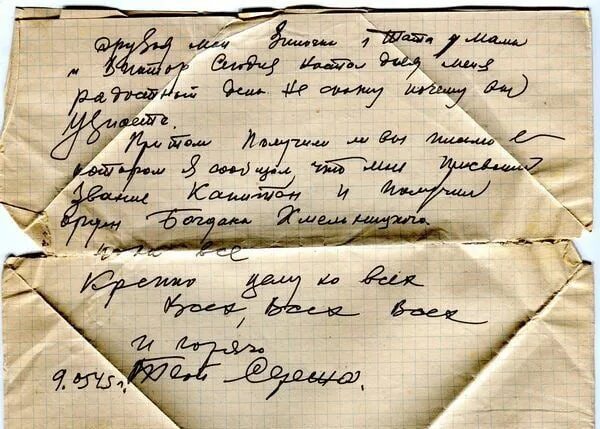 Друзья мои Зиночка, Тата, Мама
и Виктор Сегодня настал для меня
радостный день не скажу почему вы
узнаете.
Притом Получили ли вы письмо в
котором я сообщал, что мне присвоили
Звание Капитан и Получил
орден Богдана Хмельницкого
пока все
Крепко целую всех
Всех, Всех Всех
и горячо
9.05 45 г. Твой Сережа.